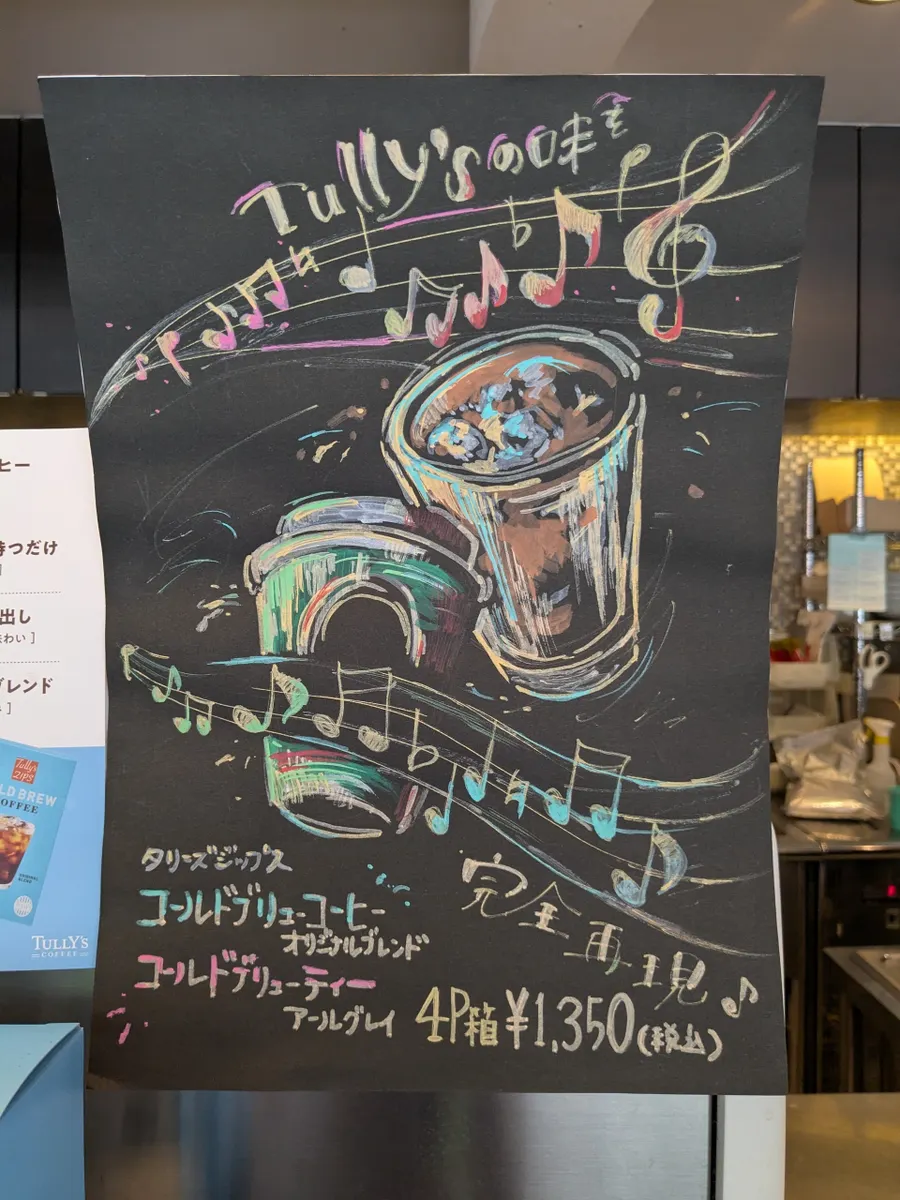 Tully'sの味を
タリーズジップス
コールドブリューコーヒー
オリジナルブレンド
コールドブリューティー
アールグレイ
完全再現
4P箱¥1,350(税込)
ヒー
持つだけ
]
出し
味わい ]
ブレンド
]
Tully's
Zips
LD BREW
COFFEE
ORIGINAL
BLEND
TULLY'S
COFFEE